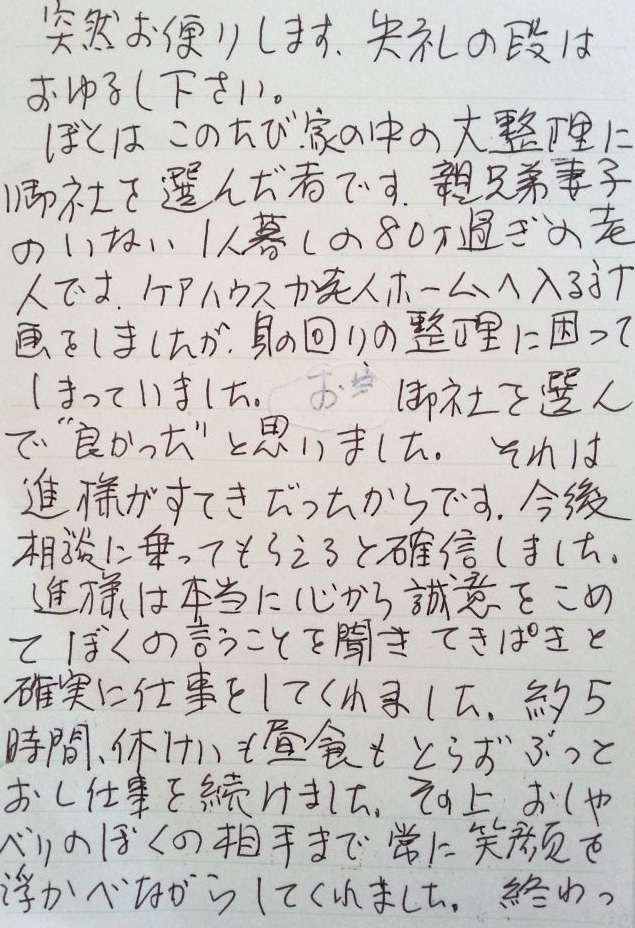 突然お便りします、失礼の段は
おゆるし下さい。
ぼくは このたび 家の中の大整理に
御社を選んだ者です。親兄弟妻子
のいない 1人暮しの80才過ぎの老
人です。ケアハウスか老人ホームへ入る計
画をしましたが、身の回りの整理に困って
しまっていました。 御社を選ん
で"良かった"と思いました。 それは
進様がすてきだったからです。今後
相談に乗ってもらえると確信しました。
進様は本当に心から誠意をこめ
て ぼくの言うことを聞き てきぱきと
確実に仕事をしてくれました。約5
時間、休けいも昼食も とらず ぶっと
おし仕事を続けました。その上 おしゃ
べりのぼくの相手まで 常に笑顔を
浮かべながらしてくれました。 終わっ